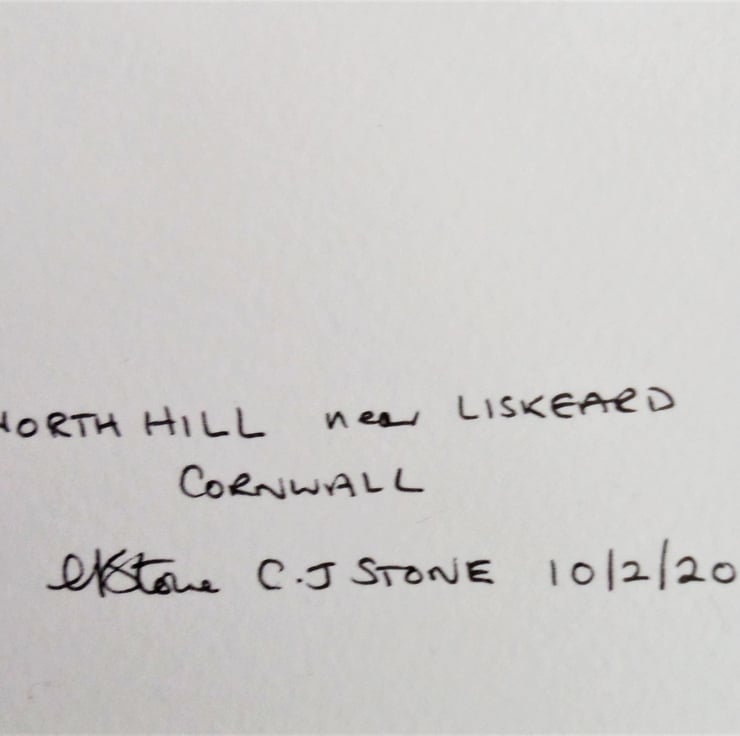 NORTH HILL near LISKEARD
CORNWALL
C.J STONE 10/2/20